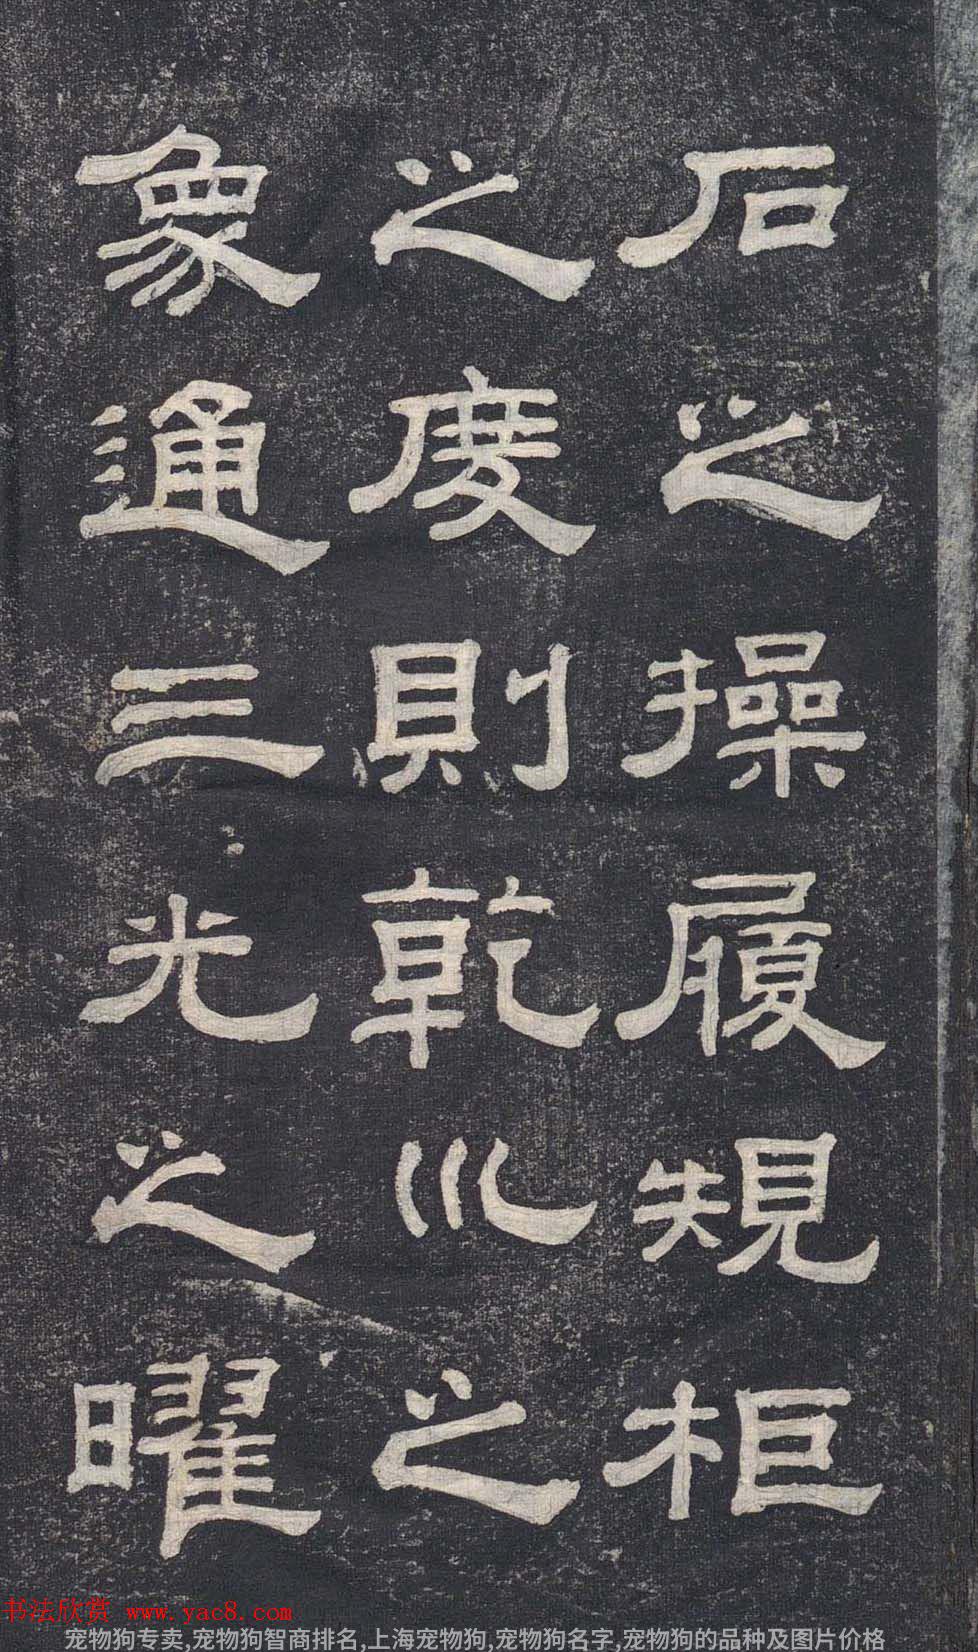 石之操履規柜
之度則乾巛之
象通三光之曜
书法欣赏 www.yac8.com
宠物狗专卖,宠物狗智商排名,上海宠物狗,宠物狗名字,宠物狗的品种及图片价格